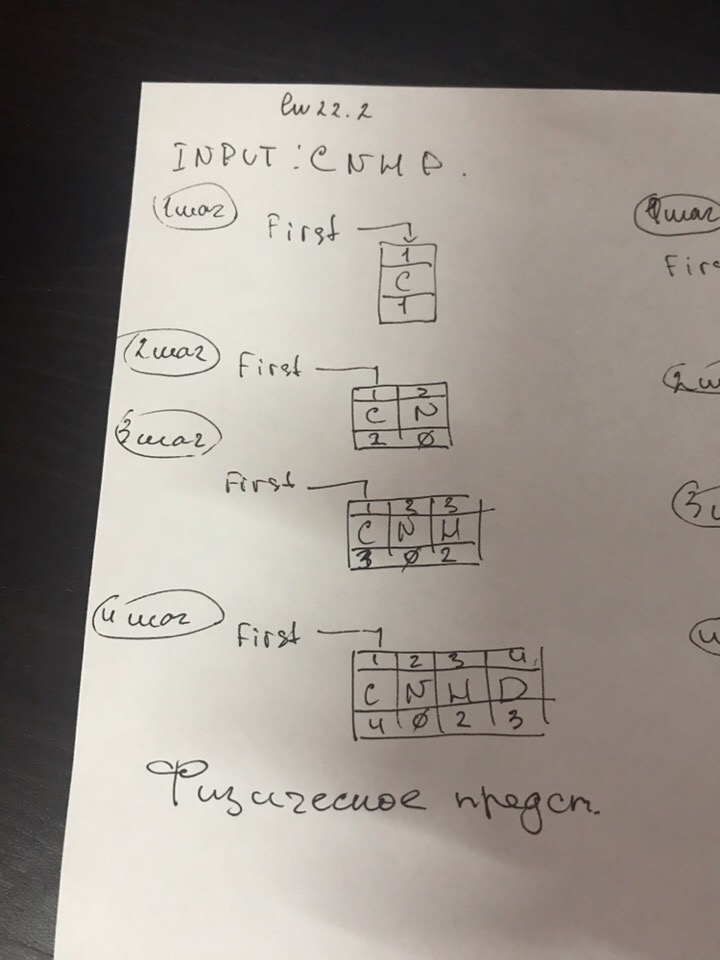 INPUT: C N H D.
1 шаг
First
1
C
1
2 шаг
First
1 2
C N
2 Ø
3 шаг
First
1 2 3
C N H
3 Ø 2
4 шаг
First
1 2 3 4
C N H D
4 Ø 2 3
Физическое предст.
1 шаг
Firs
2 ш
3 ш